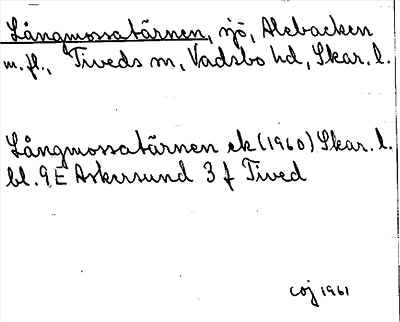 Långmossatärnen, sjö, Alebacken
m.fl., Tiveds sn, Vadsbo hd, Skar. l.
Långmossatärnen ek (1960) Skar. l.
bl. 9E Askersund 3 f Tived
coj 1961